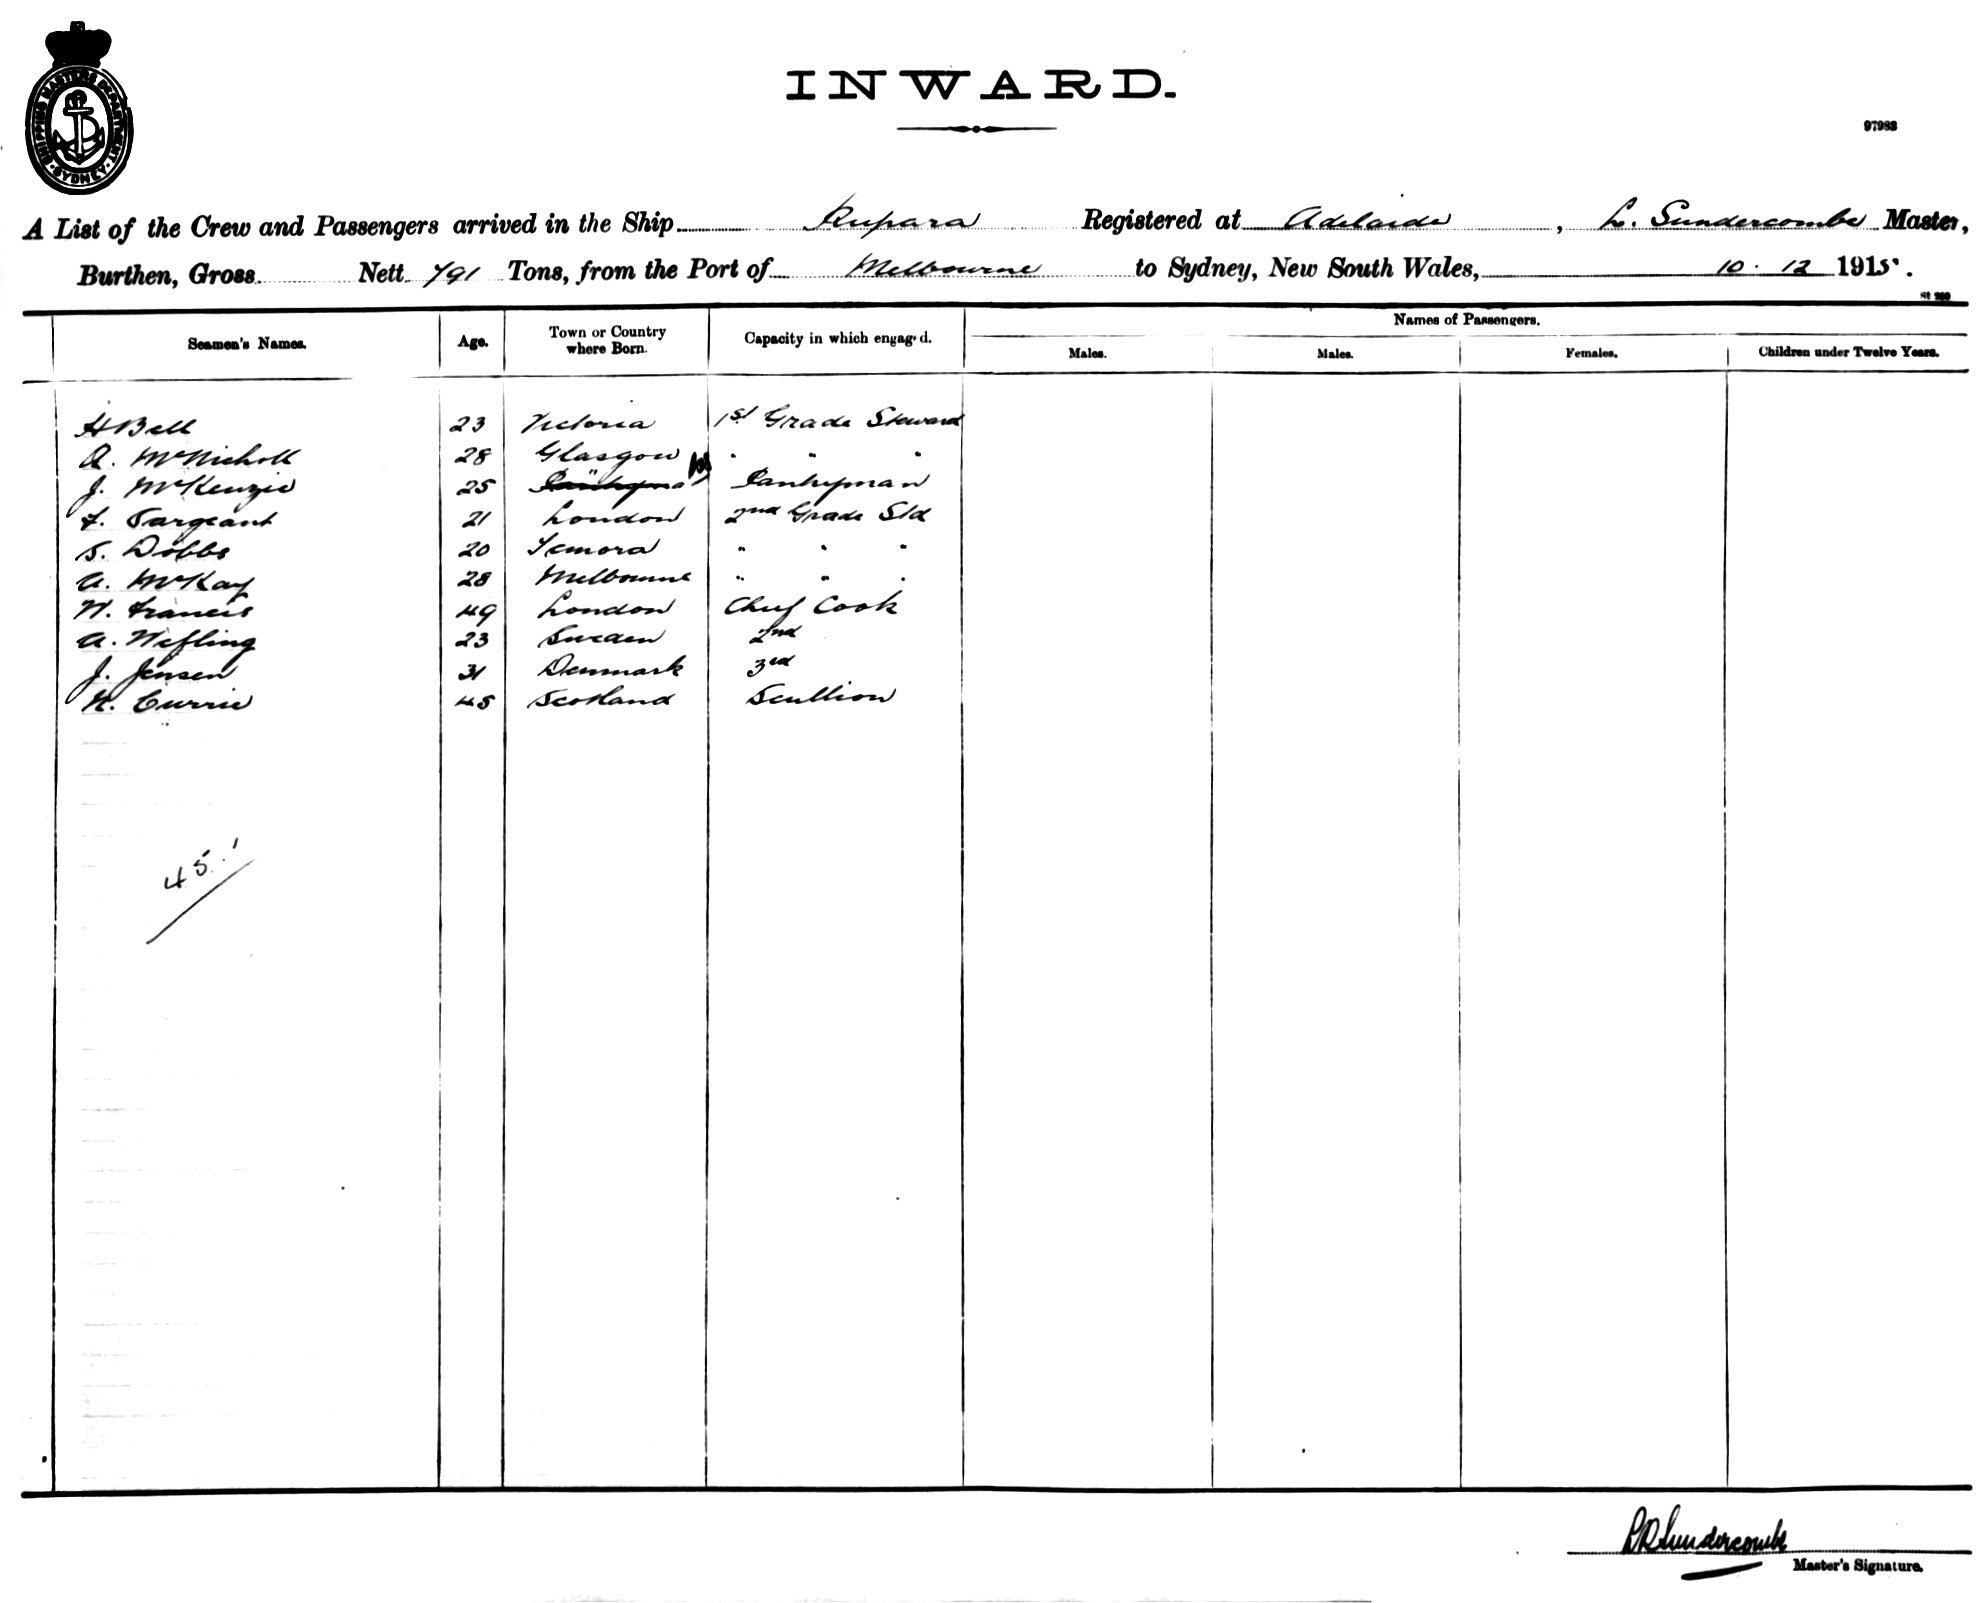 SHIPPING MASTERS DEPARTMENT · SYDNEY ·
INWARD.
97983
A List of the Crew and Passengers arrived in the Ship Rupara Registered at Adelaide, L. Sundercombe Master,
Burthen, Gross Nett 791 Tons, from the Port of Melbourne to Sydney, New South Wales, 10. 12 1915.
Names of Passengers.
Seamen's Names. Age. Town or Country where Born. Capacity in which engag'd. Males. Males. Females. Children under Twelve Years.
H Bell 23 Victoria 1st Grade Steward
A. McNicholl 28 Glasgow " " "
J. McKenzie 25 Pantryman
F. Sargeant 21 London 2nd Grade Std
S. Dobbs 20 Temora " " "
A. McKay 28 Melbourne " " "
W. Francis 49 London Chief Cook
A. Wefling 23 Sweden 2nd
J. Jensen 31 Denmark 3rd
N. Currie 45 Scotland Scullion
45
LR Sundercombe
Master's Signature.